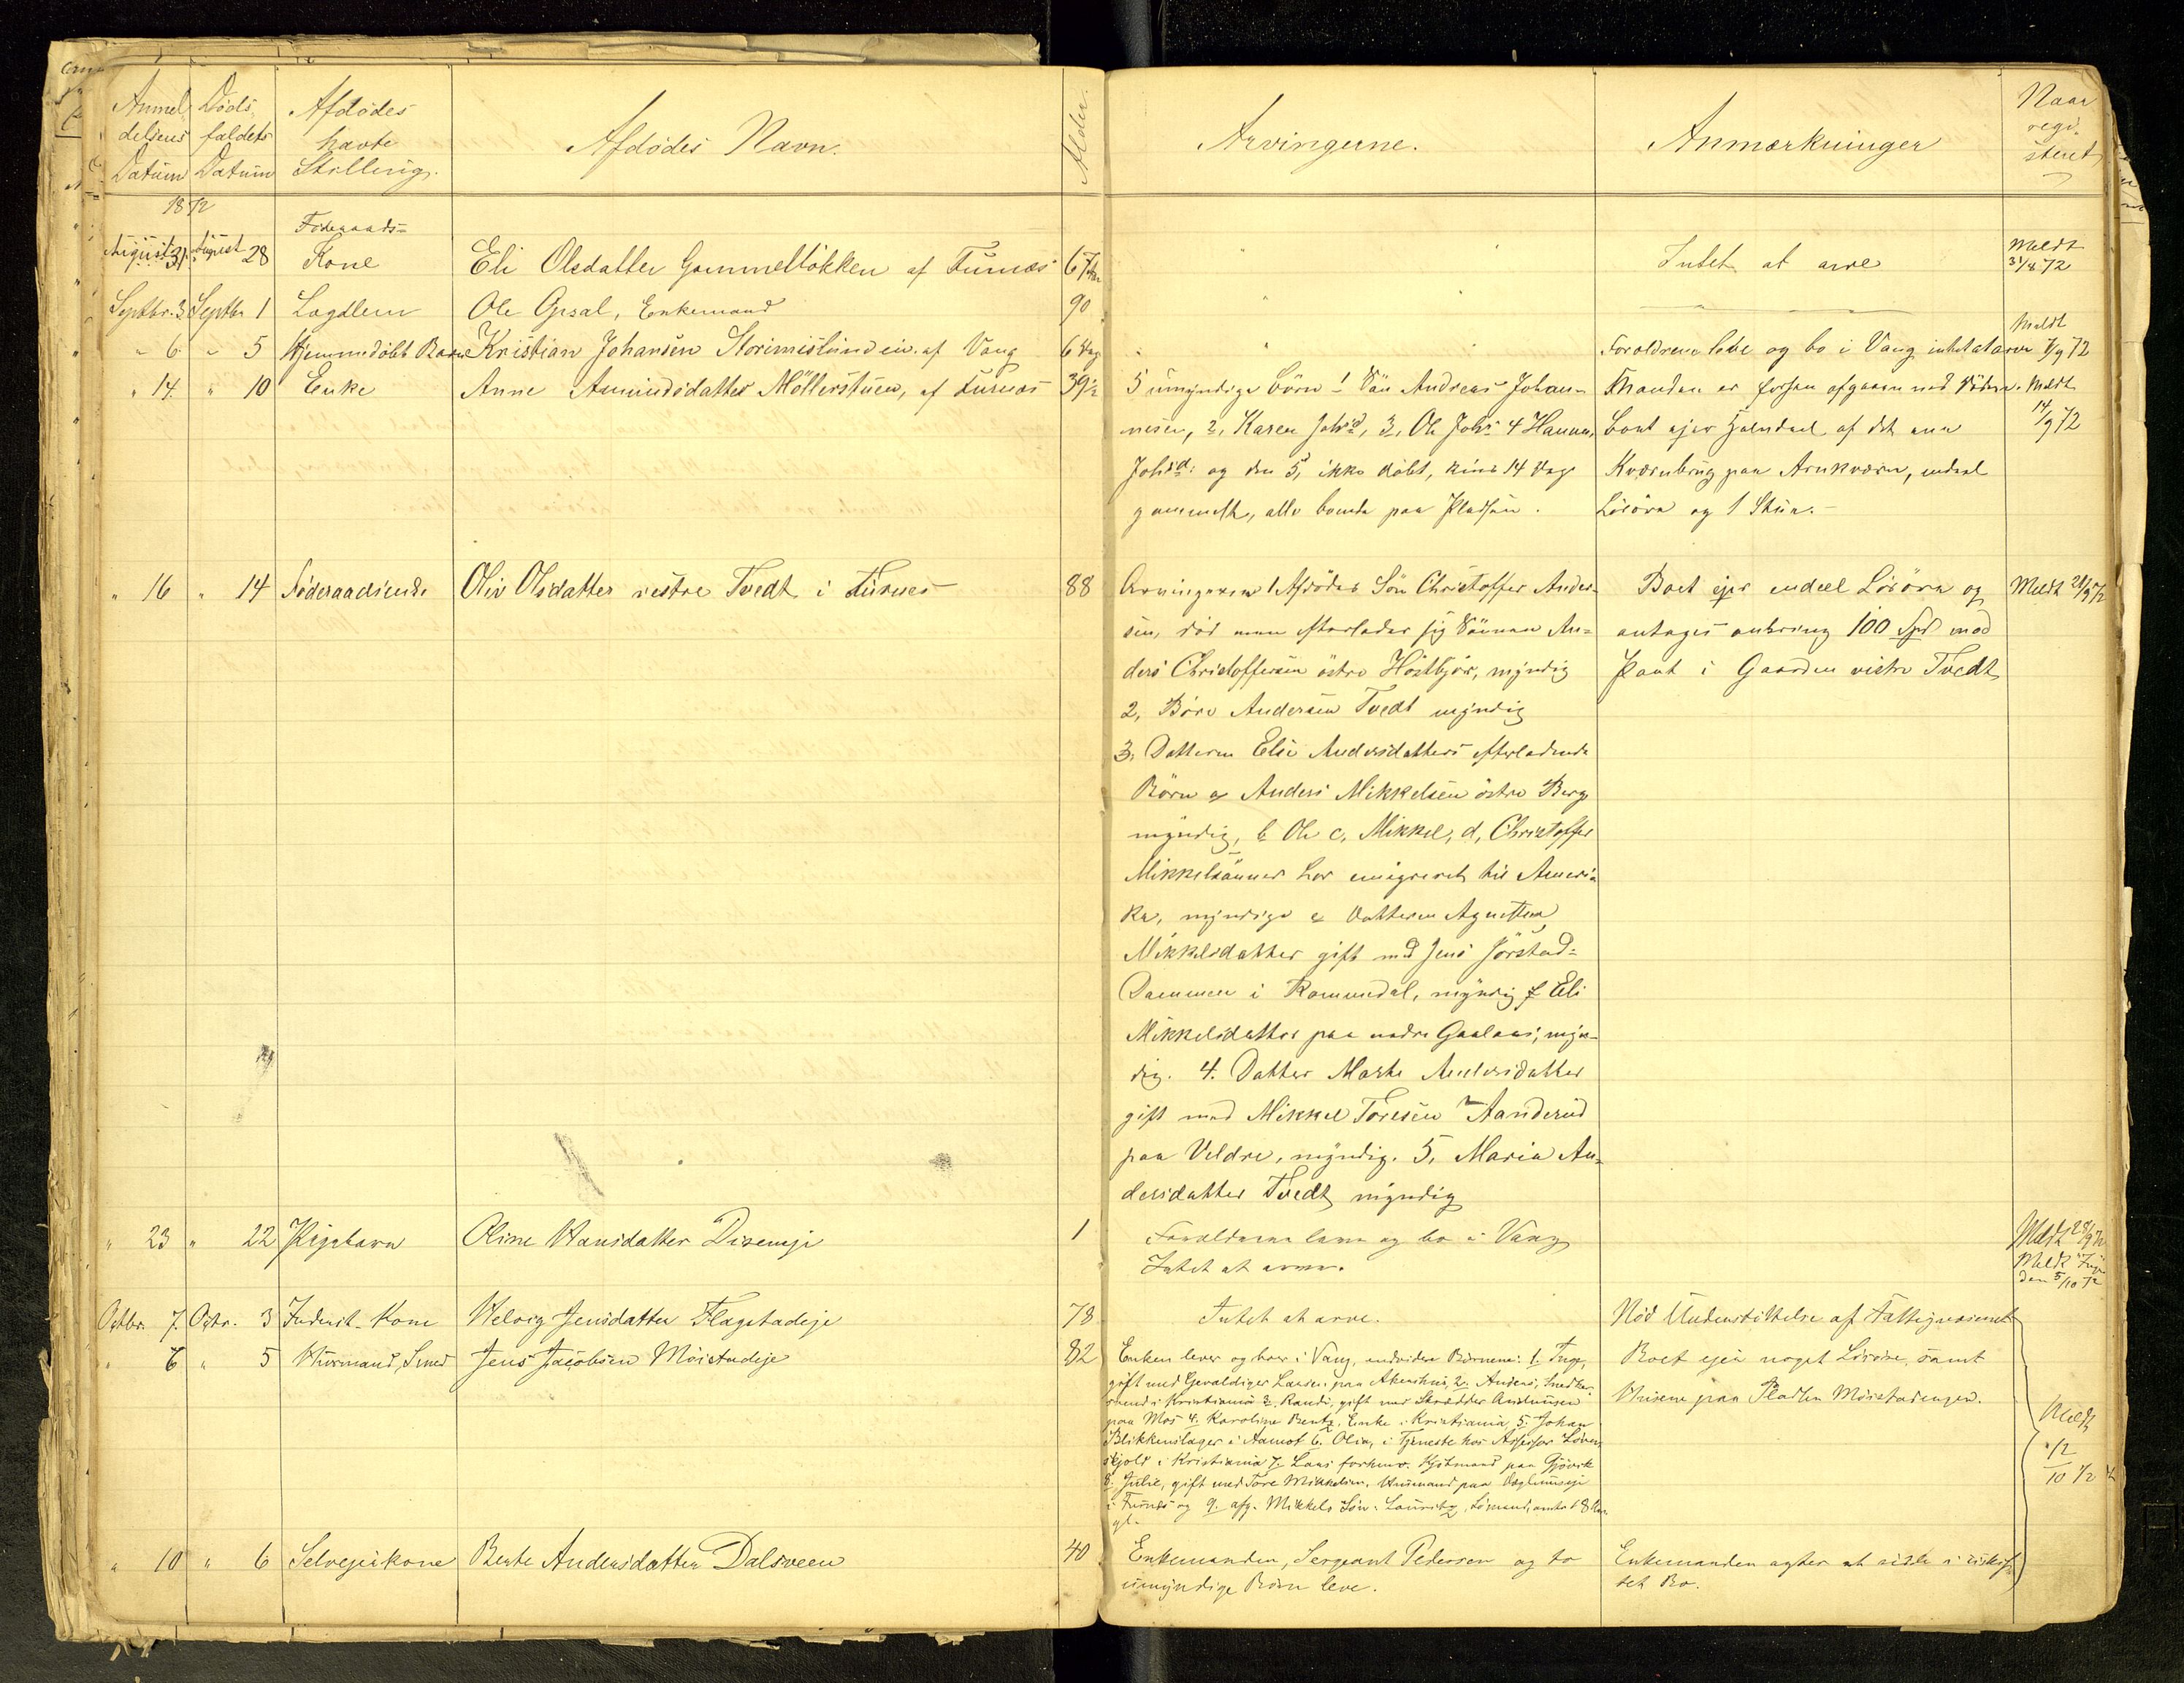 Anmeldelsens Datum	Dödsfaldets Datum	Afdödes havte Stilling.	Afdödes Navn.	Alder.	Arvingerne.	Anmærkninger	Naar registeret
1872
Föderaads=
August 31.	August 28	Kone	Eli Olsdatter Gammellökken af Furnæs	67	"	Intet at arve	Meldt 31/8 72
Septbr. 3	Septbr 1	Lægdlem	Ole Grsal, Enkemand	90	"
" 6	" 5	Hjemmedöbt Barn	Kristian Johansen af Vang	6 Dag	"	Forældrene leve og bo i Vang intet at arve	Meldt 7/9 72
" 14.	" 10	Enke	Anne Amundsdatter Möllerstuen, af Furnæs	39½	5 umyndige börn 1 Sön Andreas Johan-	Manden er forhen afgaaen ved Döden.	Meldt 14/9 72
nesen, 2, Karen Johsd, 3, Ole Johs 4 Hanna	Boet ejer Halvdeel af det ene
Johsd: og den 5, ikke döbt, kins 14 Dage	Kværnbrug paa Arnkværn, endeel
gammelt, alle boende paa Pladsen.	Lösöre og 1 Stue.-
" 16	" 14	Föderaadsenke	Oliv Olsdatter vestre Tvedt i Furnes	88	Arvingerne 1 Afdödes Sön Christoffer Ander-	Boet ejer endeel Lösöre og	Meldt 21/9 72
sen, död men efterlader sig Sönnen An-	antages omkring 100 Spd mod
ders Christoffersen östre Höstbjör, myndig	Pant i Gaarden vestre Tvedt
2, Böro Andersen Tvedt myndig
3, Datteren Elie Andersdatters efterladende
Börn a Anders Mikkelsen östre Berg
myndig, b Ole c, Mikkel, d, Christoffer
Mikkelsönner har emigreret til Ameri-
ka, myndige e Datteren Agnethea
Mikkelsdatter gift med Jens Jörstad-
Dammen i Romundal, myndig f Eli
Mikkelsdatter paa nedre Gaalaas, myn-
dig. 4. Datter Marte Andersdatter
gift med Mikkel Toresen Aanderud
paa Veldre, myndig. 5, Maria An-
dersdatter Tvedt myndig
" 23	" 22	Pigebarn	Oline Hansdatter Diseneje	1	Forældrene leve og bo i Vang	Meldt 28/9 72
Intet at arve.	Meldt Ingen den 5/10 72
Octbr. 7.	Octr. 3	Inderst-Kone	Helvig Jensdatter Flagstadeje	78	Intet at arve.	Nöd Understöttelse af Fattigvæsenet
" 6	" 5	Husmand, Smed	Jens Jacobsen Möistadeje	82	Enken lever og boer i Vang, endvidere Börnene: 1. Inge,	Boet ejer noget Lösöre, samt
gift med Gevaldiger Larsen paa Akershus, 2. Anders, Snedker-	Husene paa Pladsen Möistadengen.
svend i Kristiania 3. Randi, gift med Skrædder Amundsen
paa Mos 4. Karoline Bentz, Enke i Kristiania, 5. Johan
Blikkenslager i Aamot 6. Olia, i Tjeneste hos Assessor Löven-	Meldt 12/10 72
skjold i Kristiania 7. Lars forhenv. Hjulmand paa Gjövik
8. Julie, gift med Tore Mikkelsen, Husmand paa Dæglumseje
i Furnes og 9. afg. Mikkels Sön: Lauritz, Sömand, omtrt 8 Aar
gl.
" 10	" 6	Selvejerkone	Berte Andersdatter Dalsveen	40	Enkemanden, Sergeant Pedersen og to	Enkemanden agter at sidde i uskif-
umyndige Börn leve.	tet Bo.